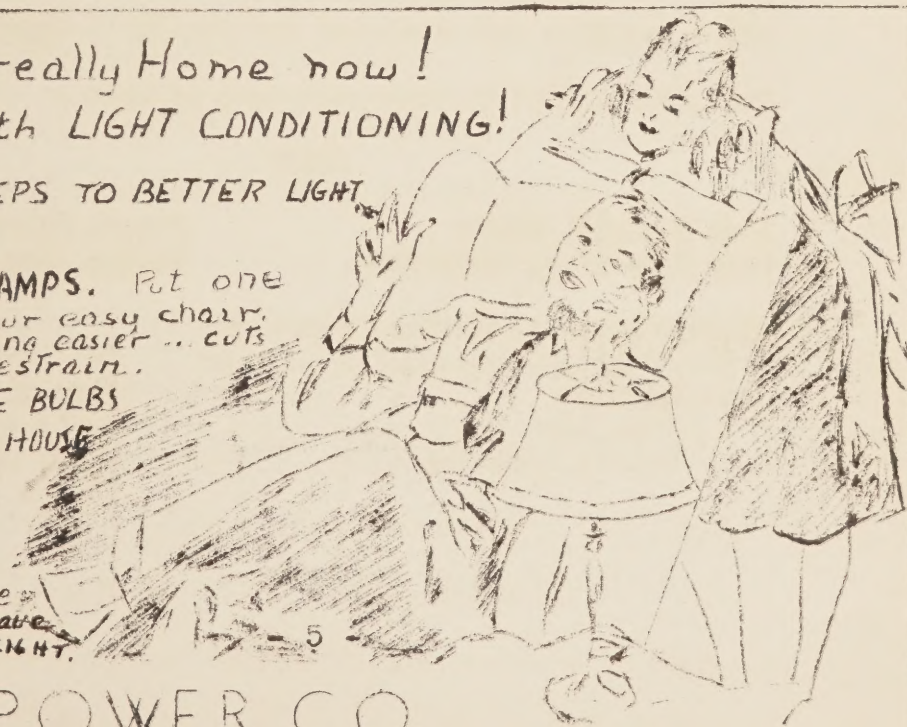 really Home now!
th LIGHT CONDITIONING!
EPS TO BETTER LIGHT
AMPS. Put one
ur easy chair.
ng easier ... cuts
estrain.
E BULBS
HOUSE
e
ave
IGHT.
- 5 -
POWER CO